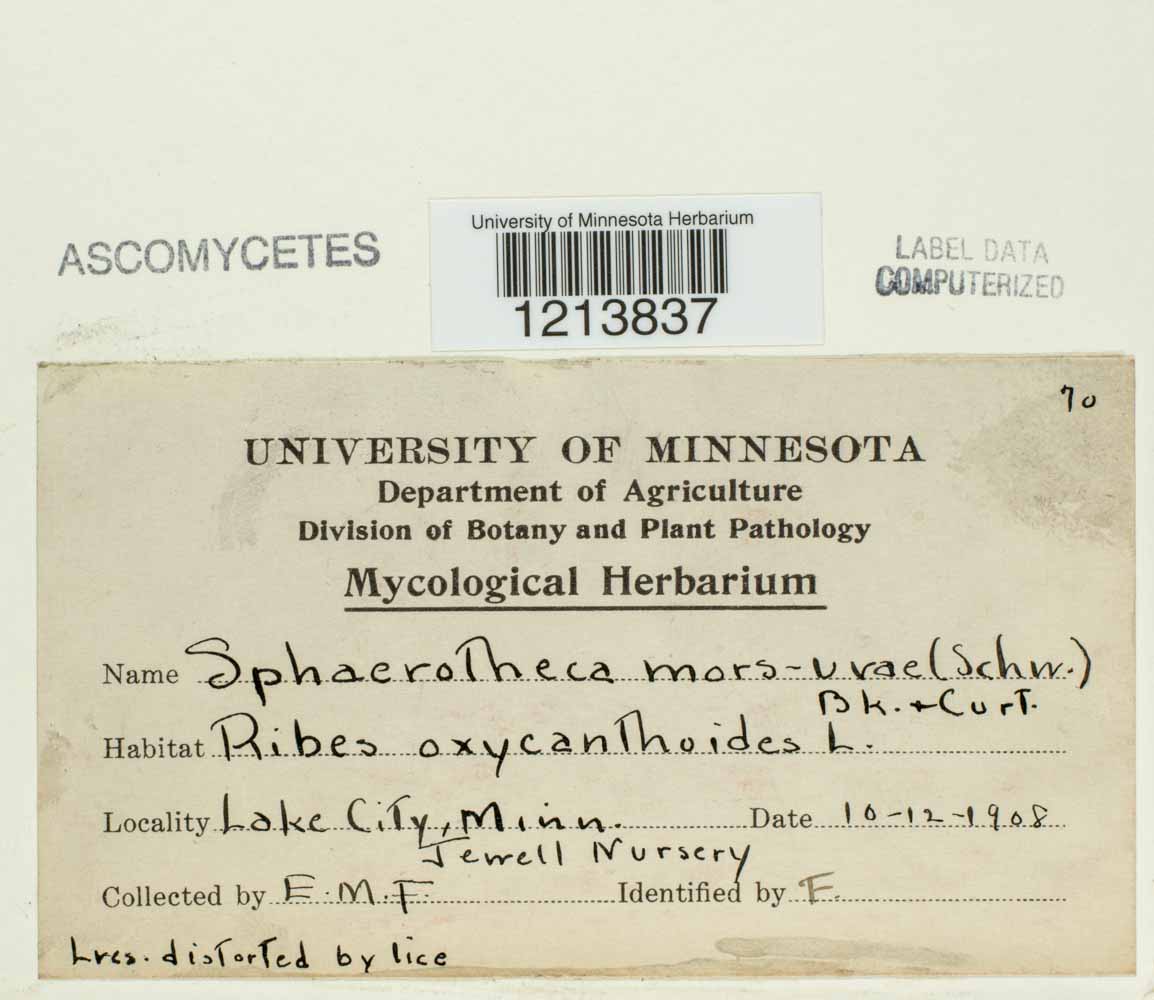 ASCOMYCETES
University of Minnesota Herbarium
1213837
LABEL DATA
COMPUTERIZED
70
UNIVERSITY OF MINNESOTA
Department of Agriculture
Division of Botany and Plant Pathology
Mycological Herbarium
Name Sphaerotheca mors-uvae (Schw.)
Bk. + Curt.
Habitat Ribes oxycanthoides L.
Locality Lake City, Minn. Date 10-12-1908
Jewell Nursery
Collected by E. M. F. Identified by F.
Lves. distorted by lice